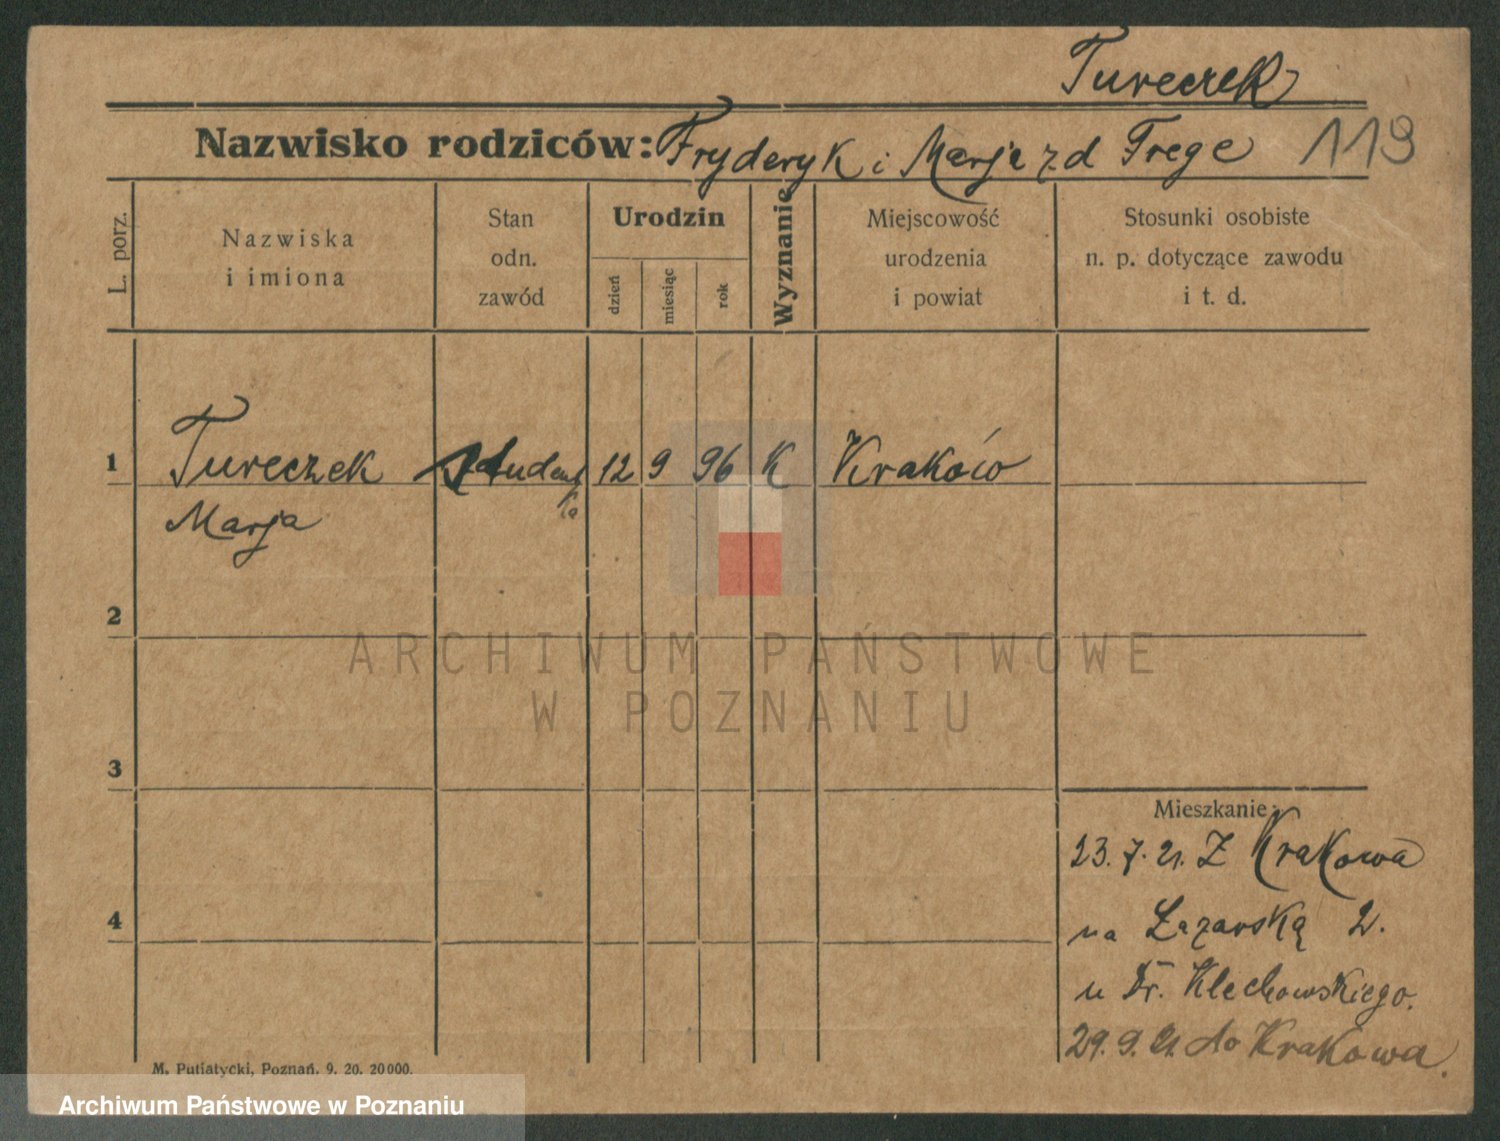 Tureczek
Nazwisko rodziców: Fryderyk i Marja z d Frege 119
L. porz.
Nazwiska
i imiona
Stan
odn.
zawód
Urodzin
dzień
miesiąc
rok
Wyznanie
Miejscowość
urodzenia
i powiat
Stosunki osobiste
n. p. dotyczące zawodu
i t. d.
1 Tureczek studentka 12 9 96 K Kraków
Marja
2
ARCHIWUM PAŃSTWOWE
W POZNANIU
3
Mieszkanie:
23. 7. 21. Z Krakowa
4
na Łazarską 2.
u Dr. Klechowskiego.
29. 9. 21 do Krakowa.
M. Putiatycki, Poznań. 9. 20. 20000.
Archiwum Państwowe w Poznaniu